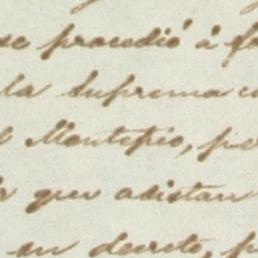 se procedió á fo
la Suprema co
l Montepio, pe
que asistan
en decreto, p